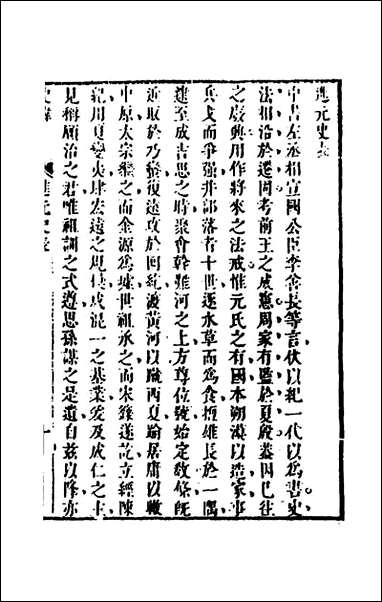 進元史表
中書左丞相宣國公臣李善長等言伏以紀一代以爲書史
法相沿於遷固考前王之成憲周家有監於夏殷蓋因已往
之廢興用作將來之法戒惟元氏之有國本朔漠以造家事
兵戈而爭強并部落者十世逐水草而爲食擅雄長於一隅
逮至成吉思之時聚會斡難河之上方尊位號始定敎條旣
近取於乃蠻復遠攻於回紇渡黃河以蹴西夏踰居庸以瞰
中原太宗繼之而金源爲墟世祖承之而宋籙遂訖立經陳
紀用夏變夷肆宏遠之規模成混一之基業爰及成仁之主
見稱願治之君唯祖訓之式遵思孫謀之是遺自茲以降亦
進元史表